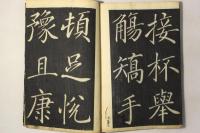 接杯舉
觴矯手
頓足悅
豫且康